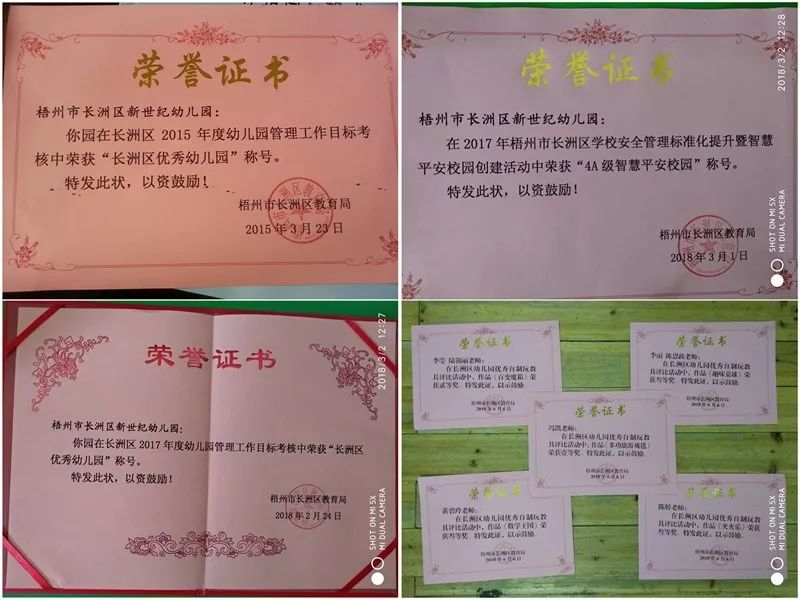 荣誉证书
梧州市长洲区新世纪幼儿园：
你园在长洲区 2015 年度幼儿园管理工作目标考
核中荣获“长洲区优秀幼儿园”称号。
特发此状，以资鼓励！
梧州市长洲区教育局
2015 年 3 月 23 日
荣誉证书
梧州市长洲区新世纪幼儿园：
在 2017 年梧州市长洲区学校安全管理标准化提升暨智慧
平安校园创建活动中荣获“4A 级智慧平安校园”称号。
特发此状，以资鼓励！
梧州市长洲区教育局
2018 年 3 月 1 日
2018/3/2 12:28
SHOT ON MI 5X
MI DUAL CAMERA
荣誉证书
梧州市长洲区新世纪幼儿园：
你园在长洲区 2017 年度幼儿园管理工作目标考核中荣获“长洲区
优秀幼儿园”称号。
特发此状，以资鼓励！
梧州市长洲区教育局
2018 年 2 月 24 日
2018/3/2 12:27
SHOT ON MI 5X
MI DUAL CAMERA
荣誉证书
李莹 陆锦丽老师：
在长洲区幼儿园优秀自制玩教
具评比活动中，作品《百变魔箱》荣
获贰等奖。特发此证，以示鼓励。
梧州市长洲区教育局
2018 年 6 月 6 日
荣誉证书
李丽 陈思政老师：
在长洲区幼儿园优秀自制玩教
具评比活动中，作品《趣味桌球》荣
获叁等奖。特发此证，以示鼓励。
梧州市长洲区教育局
2018 年 6 月 6 日
荣誉证书
冯凯老师：
在长洲区幼儿园优秀自制玩教
具评比活动中，作品《多功能游戏毯》
荣获壹等奖。特发此证，以示鼓励。
梧州市长洲区教育局
2018 年 6 月 6 日
荣誉证书
黄碧玲老师：
在长洲区幼儿园优秀自制玩教
具评比活动中，作品《数学王国》荣
获叁等奖。特发此证，以示鼓励。
梧州市长洲区教育局
2018 年 6 月 6 日
荣誉证书
陈婷老师：
在长洲区幼儿园优秀自制玩教
具评比活动中，作品《夹夹乐》荣
获叁等奖。特发此证，以示鼓励。
梧州市长洲区教育局
2018 年 6 月 6 日
SHOT ON MI 5X
MI DUAL CAMERA